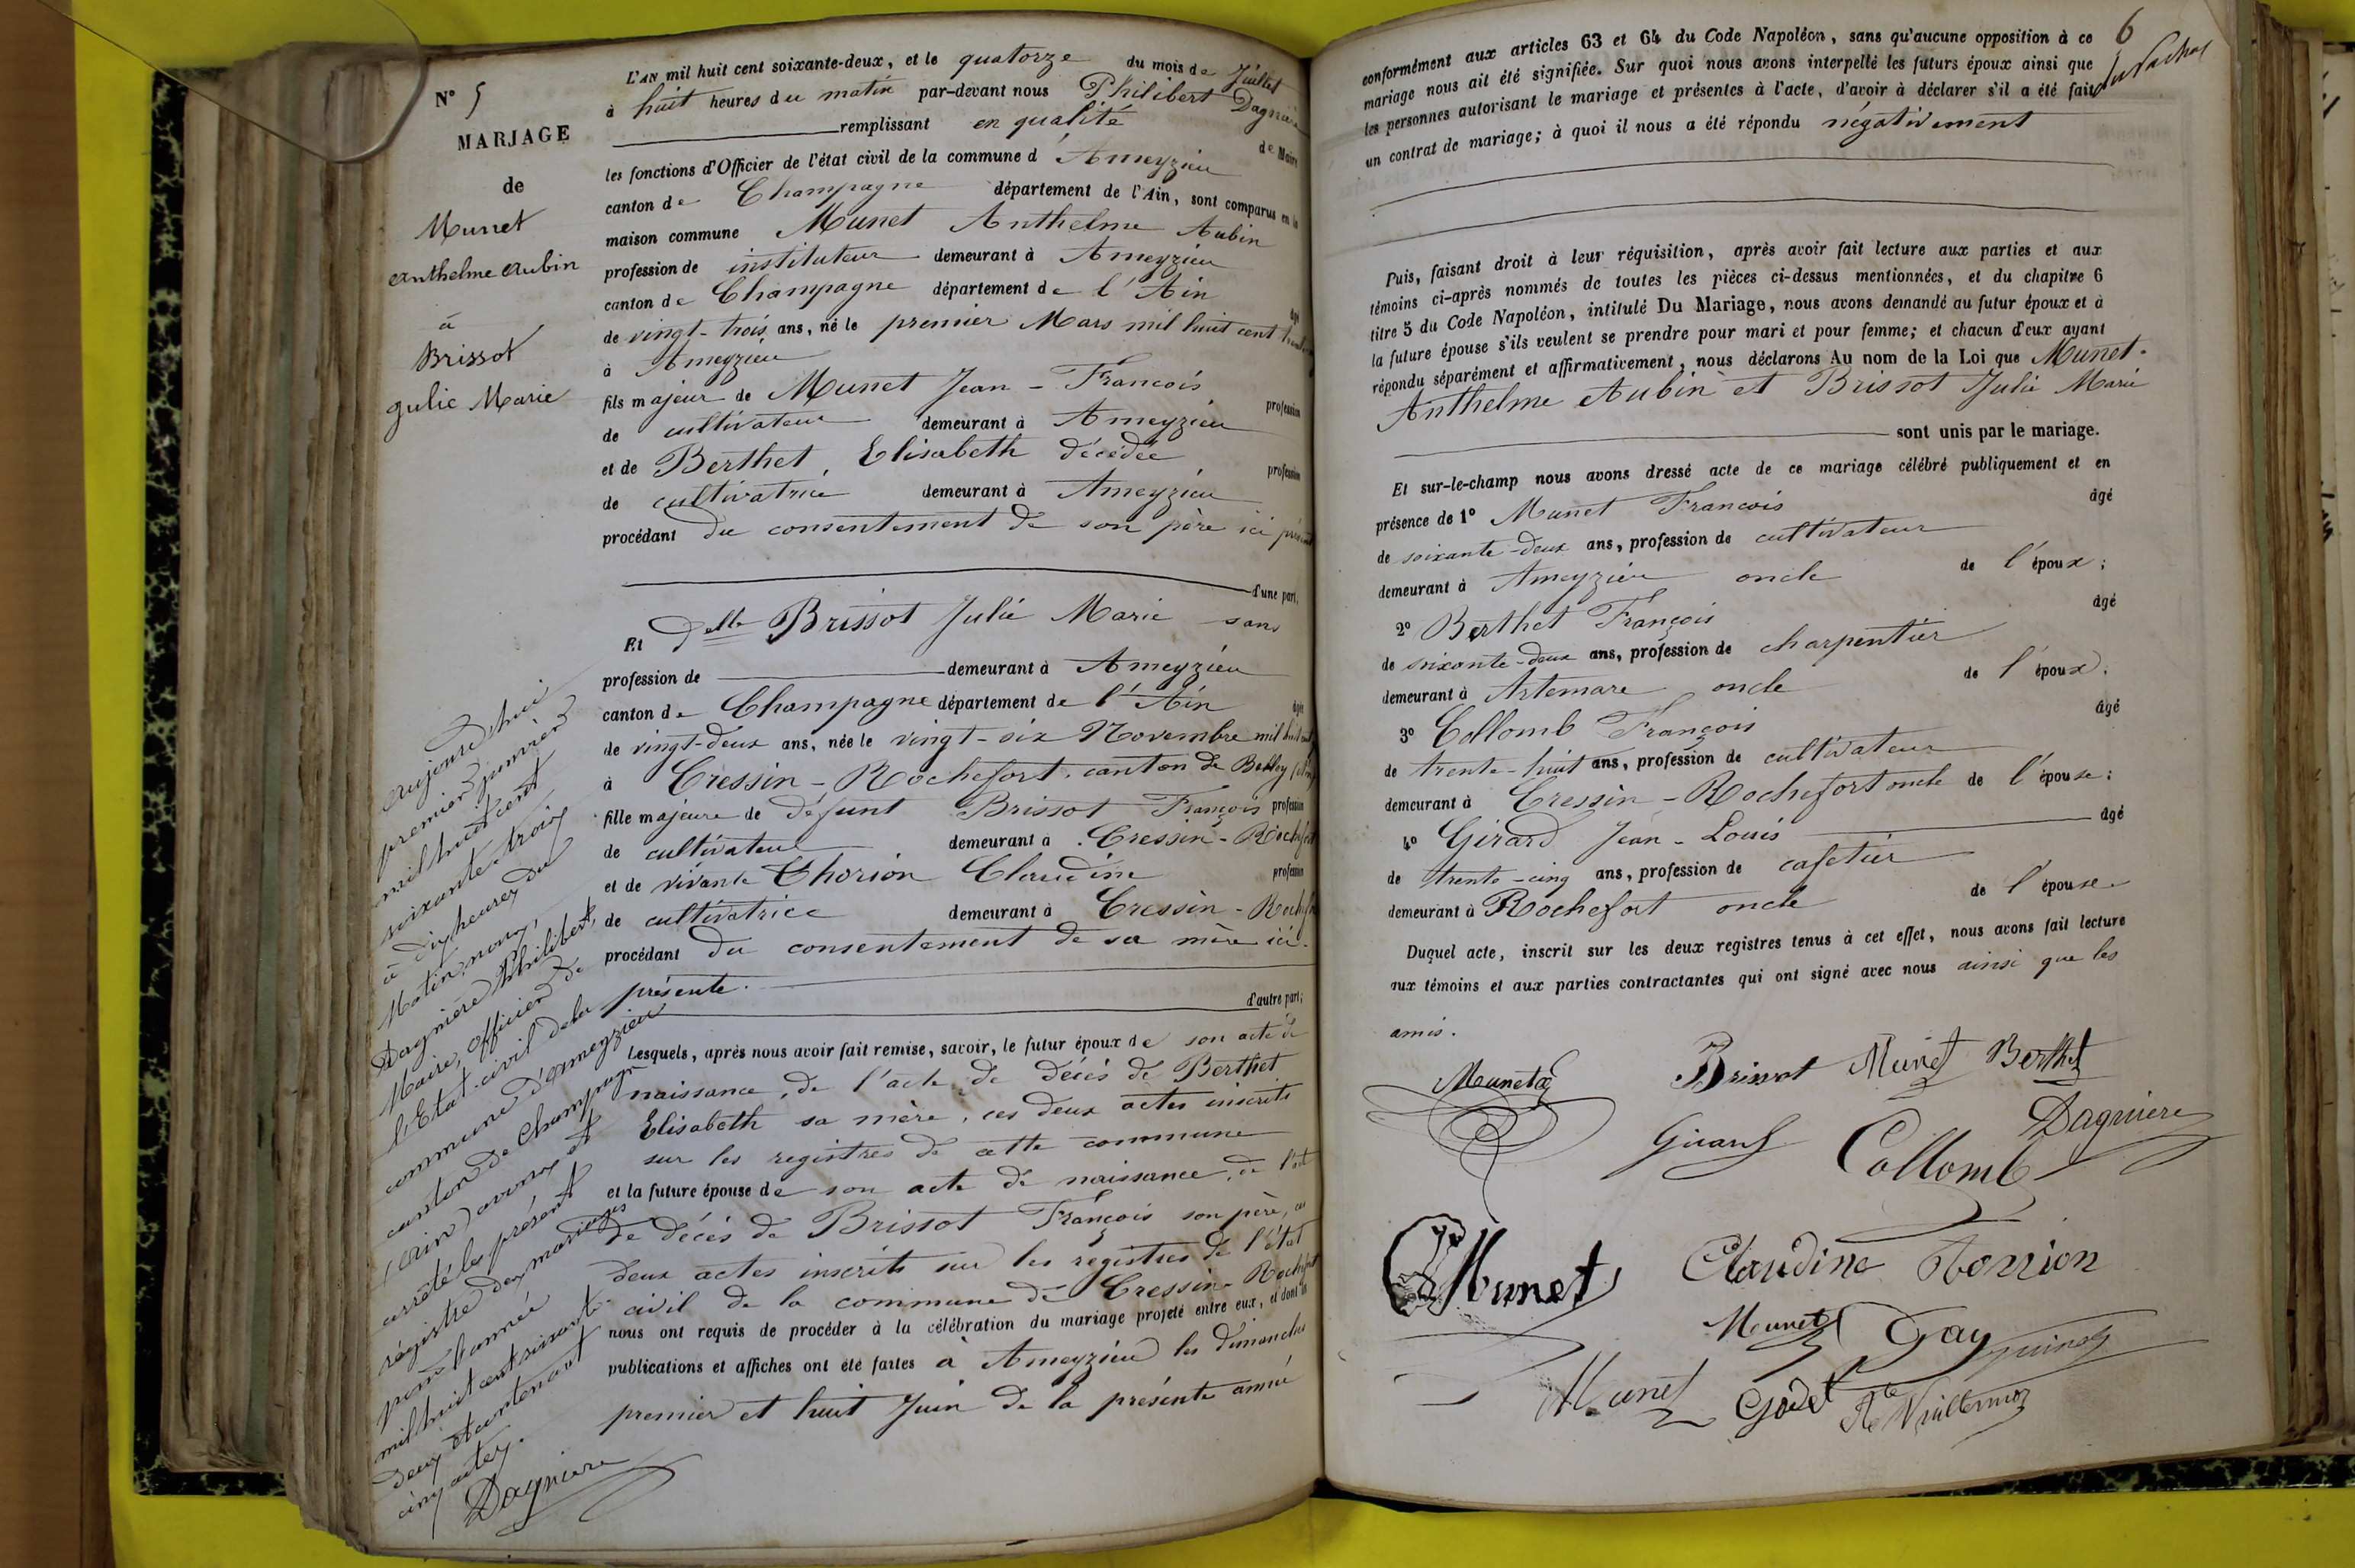 N° 5
MARIAGE
de
Munet
Anthelme Aubin
à
Brissot
Julie Marie
Aujourd'hui
premier janvier
mil huit cent
soixante-trois
à dix heures du
Matin, nous,
Dagnière Philibert,
Maire, officier de
l'Etat-civil de la
commune d'Ameyzieu
canton de Champagne
(Ain) avons et
arrêté le présent
régistre des mariages
pour l'année
mil huit cent soixante
deux et contenant
cinq actes.
Dagniere
L'AN mil huit cent soixante-deux, et le quatorze du mois de Juillet
à huit heures du matin par-devant nous Philibert Dagnière
remplissant en qualité de Maire
les fonctions d'Officier de l'état civil de la commune d'Ameyzieu
canton de Champagne département de l'Ain, sont comparus en la
maison commune Munet Anthelme Aubin
profession de instituteur demeurant à Ameyzieu
canton de Champagne département de l'Ain âgé
de vingt-trois ans, né le premier Mars mil huit cent
à Ameyzieu
fils majeur de Munet Jean-Francois profession
de cultivateur demeurant à Ameyzieu
et de Berthet, Elisabeth décédée profession
de cultivatrice demeurant à Ameyzieu
procédant du consentement de son père ici présent
d'une part,
Et Delle Brissot Julie Marie sans
profession de demeurant à Ameyzieu
canton de Champagne département de l'Ain âgée
de vingt-deux ans, née le vingt-six Novembre mil huit cent
à Cressin-Rochefort, canton de Belley
fille majeure de défunt Brissot François profession
de cultivateur demeurant à Cressin-Rochefort
et de vivante Thorion Claudine profession
de cultivatrice demeurant à Cressin-Rochefort
procédant du consentement de sa mère ici
présente.
d'autre part;
Lesquels, après nous avoir fait remise, savoir, le futur époux de son acte de
naissance, de l'acte de décès de Berthet
Elisabeth sa mère, ces deux actes inscrits
sur les registres de cette commune
et la future épouse de son acte de naissance, de l'acte
de décès de Brissot François son père, ces
deux actes inscrits sur les registres de l'état
civil de la commune de Cressin-Rochefort
nous ont requis de procéder à la célébration du mariage projeté entre eux, et dont les
publications et affiches ont été faites à Ameyzieu les dimanches
premier et huit Juin de la présente année
6
conformément aux articles 63 et 64 du Code Napoléon, sans qu'aucune opposition à ce
mariage nous ait été signifiée. Sur quoi nous avons interpellé les futurs époux ainsi que
les personnes autorisant le mariage et présentes à l'acte, d'avoir à déclarer s'il a été fait
un contrat de mariage; à quoi il nous a été répondu négativement
Puis, faisant droit à leur réquisition, après avoir fait lecture aux parties et aux
témoins ci-après nommés de toutes les pièces ci-dessus mentionnées, et du chapitre 6
titre 5 du Code Napoléon, intitulé Du Mariage, nous avons demandé au futur époux et à
la future épouse s'ils veulent se prendre pour mari et pour femme; et chacun d'eux ayant
répondu séparément et affirmativement, nous déclarons Au nom de la Loi que Munet
Anthelme Aubin et Brissot Julie Marie
sont unis par le mariage.
Et sur-le-champ nous avons dressé acte de ce mariage célébré publiquement et en
présence de 1° Munet Francois âgé
de soixante-deux ans, profession de cultivateur
demeurant à Ameyzieu oncle de l'époux;
2° Berthet François âgé
de soixante-deux ans, profession de charpentier
demeurant à Artemare oncle de l'époux.
3° Collomb François âgé
de trente-huit ans, profession de cultivateur
demeurant à Cressin-Rochefort oncle de l'épouse;
4° Girard Jean-Louis âgé
de trente-cinq ans, profession de cafetier
demeurant à Rochefort oncle de l'épouse
Duquel acte, inscrit sur les deux registres tenus à cet effet, nous avons fait lecture
aux témoins et aux parties contractantes qui ont signé avec nous ainsi que les
amis.
Munet Brissot Munet Berthet
Girard Collomb Dagniere
Munet Claudine Torrion
Munet Gay
Munet Godet Vuillermoz